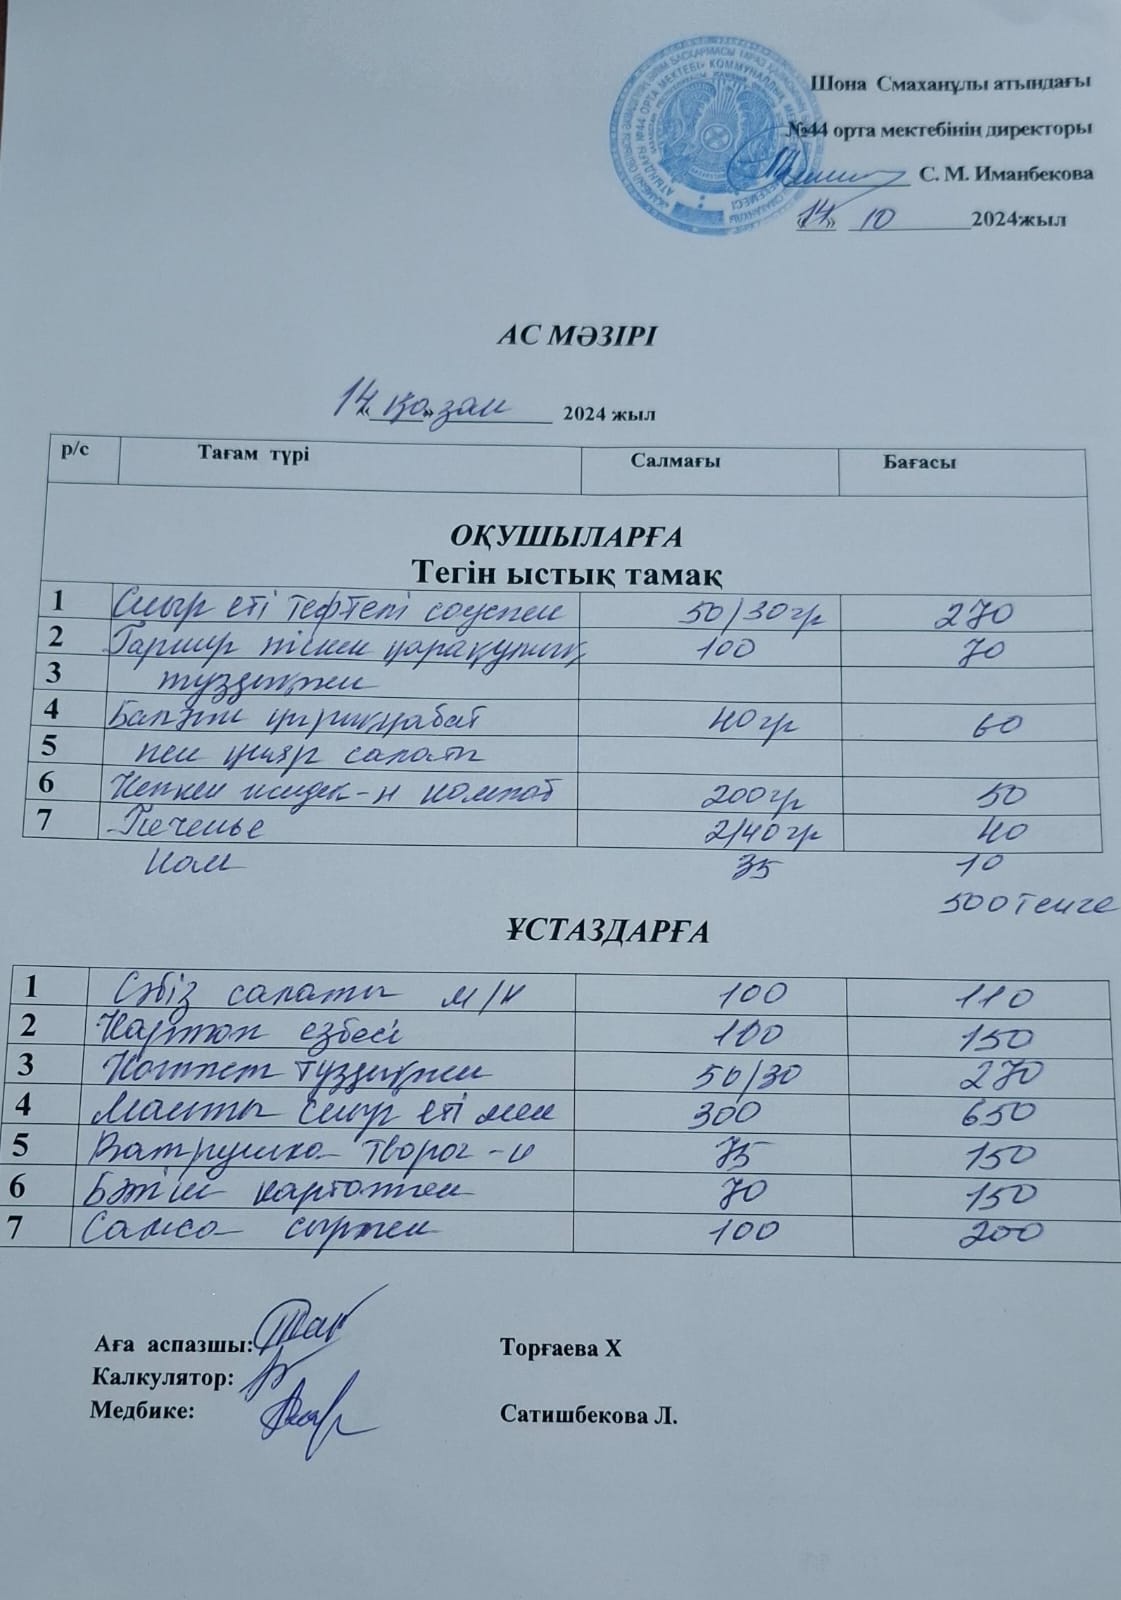 Шона Смаханұлы атындағы
№44 орта мектебінің директоры
С. М. Иманбекова
«14» 10 2024жыл
АС МӘЗІРІ
«14» қазан 2024 жыл
р/с Тағам түрі Салмағы Бағасы
ОҚУШЫЛАРҒА
Тегін ыстық тамақ
1 Сиыр еті тефтелі соуспен 50/30гр 270
2 Гарнир піскен қарақұмық 100 70
3 тұздықпен
4 Балғын қырыққабат 40гр 60
5 пен қияр салаты
6 Кепкен жидек-н компот 200гр 50
7 Печенье 2/40гр 40
Нан 35 10
500 тенге
ҰСТАЗДАРҒА
1 Сәбіз салаты м/н 100 110
2 Картоп езбесі 100 150
3 Котлет тұздықпен 50/30 270
4 Манты сиыр еті мен 300 650
5 Ватрушка творог-н 75 150
6 Бәліш картоппен 70 150
7 Самса сырмен 100 200
Аға аспазшы: Торғаева Х
Калкулятор:
Медбике: Сатишбекова Л.